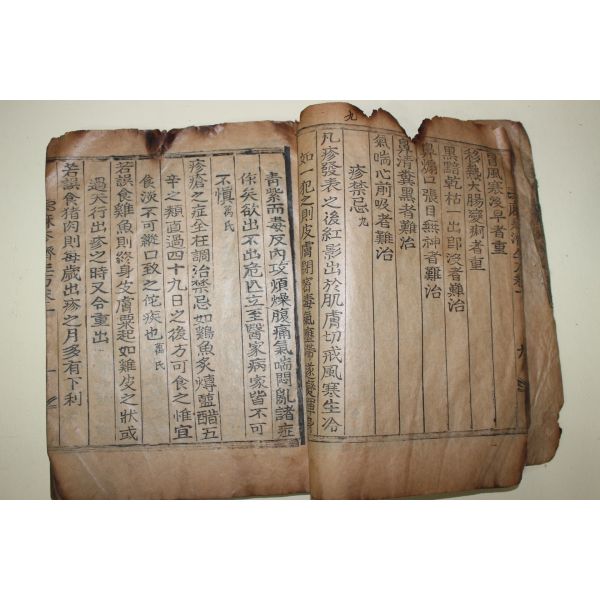 九
冒風寒沒早者重
移熱大腸變痢者重
黑黯乾枯一出卽沒者難治
鼻扇口張目無神者難治
鼻淸糞黑者難治
氣喘心前吸者難治
疹禁忌九
凡疹發表之後紅影出於肌膚切戒風寒生冷
如一犯之則皮膚閉密毒氣壅滯遂變渾身
靑紫而毒反內攻煩燥腹痛氣喘悶亂諸症
作矣欲出不出危亡立至醫家病家皆不可
不愼萬氏
疹瘡之症全在調治禁忌如鷄魚炙煿鹽醋五
辛之類直過四十九日之後方可食之惟宜
食淡不可縱口致之侘疾也萬氏
若誤食鷄魚則終身皮膚粟起如雞皮之狀或
遇天行出疹之時又令重出
若誤食猪肉則每歲出疹之月多有下利